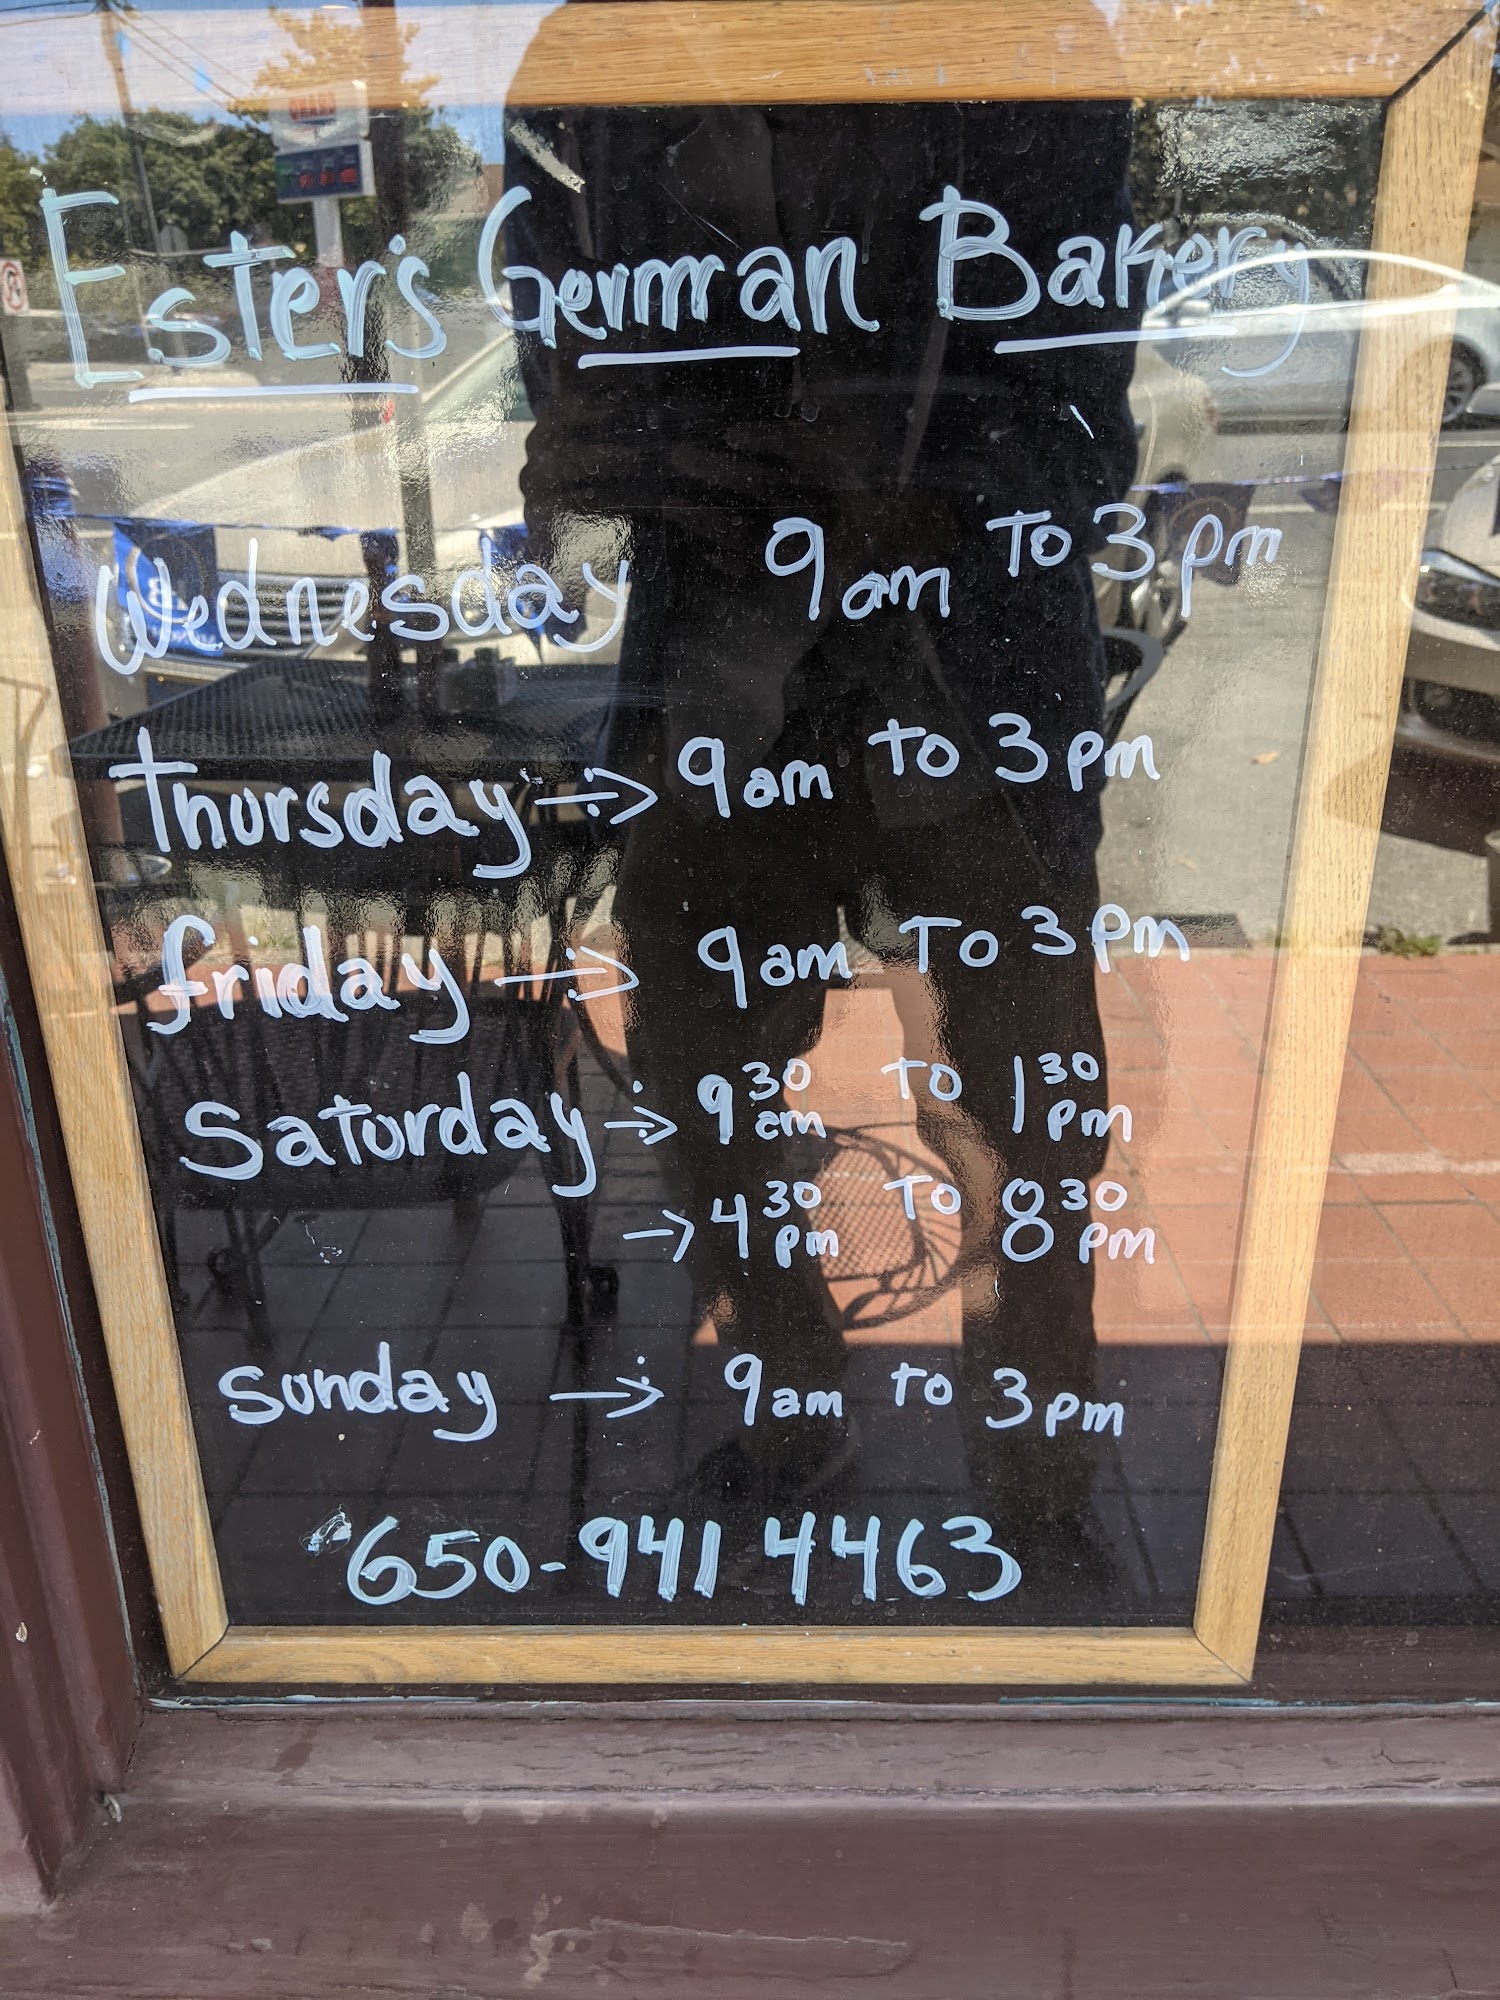 Ester's German Bakery
Wednesday 9am To 3pm
Thursday → 9am to 3pm
friday → 9am To 3pm
Saturday → 9 30 am To 1 30 pm
→ 4 30 pm To 8 30 pm
Sunday → 9am To 3pm
650-941 4463